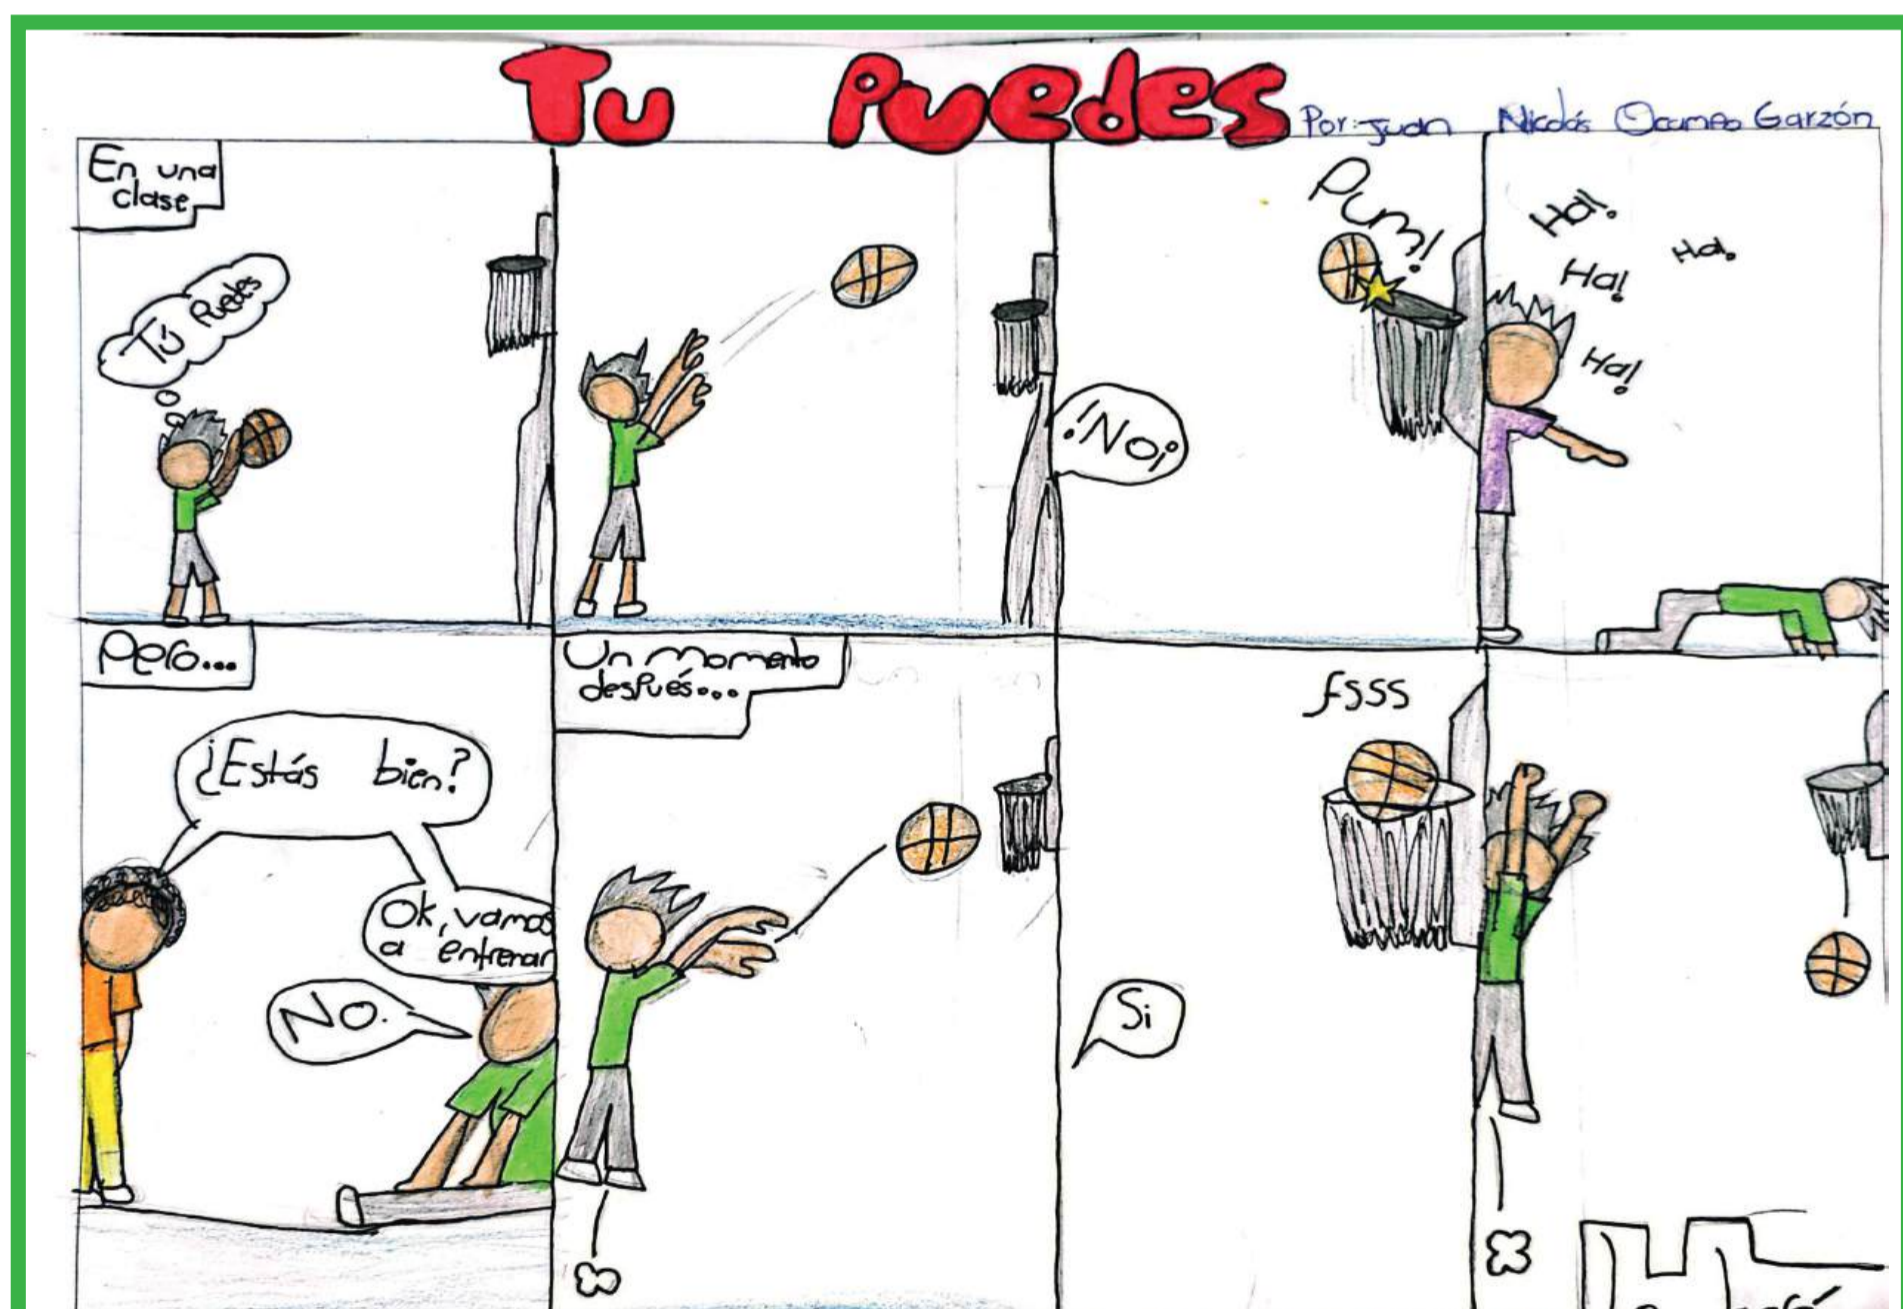 Tu Puedes
Por: Juan Nicolás Ocampo Garzón
En una
clase
Tú Puedes
!No¡
Pum!
Ha!
Ha!
Ha.
Ha!
Pero...
¿Estás bien?
Ok, vamos
a entrenar
No.
Un momento
después...
fsss
Si